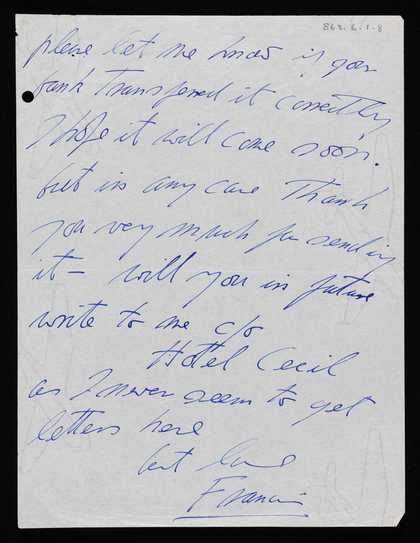 862.6.1.8
please let me know if your
bank transferred it correctly
I hope it will come soon.
but in any case Thank
you very much for sending
it – will you in future
write to me c/o
Hotel Cecil
as I never seem to get
letters here
best love
Francis